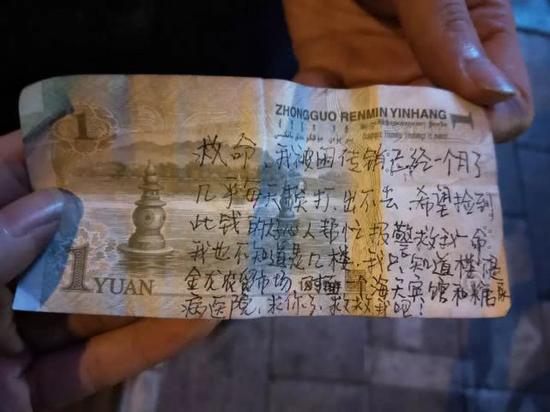 ZHONGGUO RENMIN YINHANG
1
1
救命,我被困传销已经一个月了
几乎每天挨打,出不去 希望捡到
此钱的好人帮忙报警救我一命
我也不知道是几楼,我只知道楼
金龙农贸市场,对面一个海天宾馆和糖尿
病医院,求你了,救救我吧!
1 YUAN